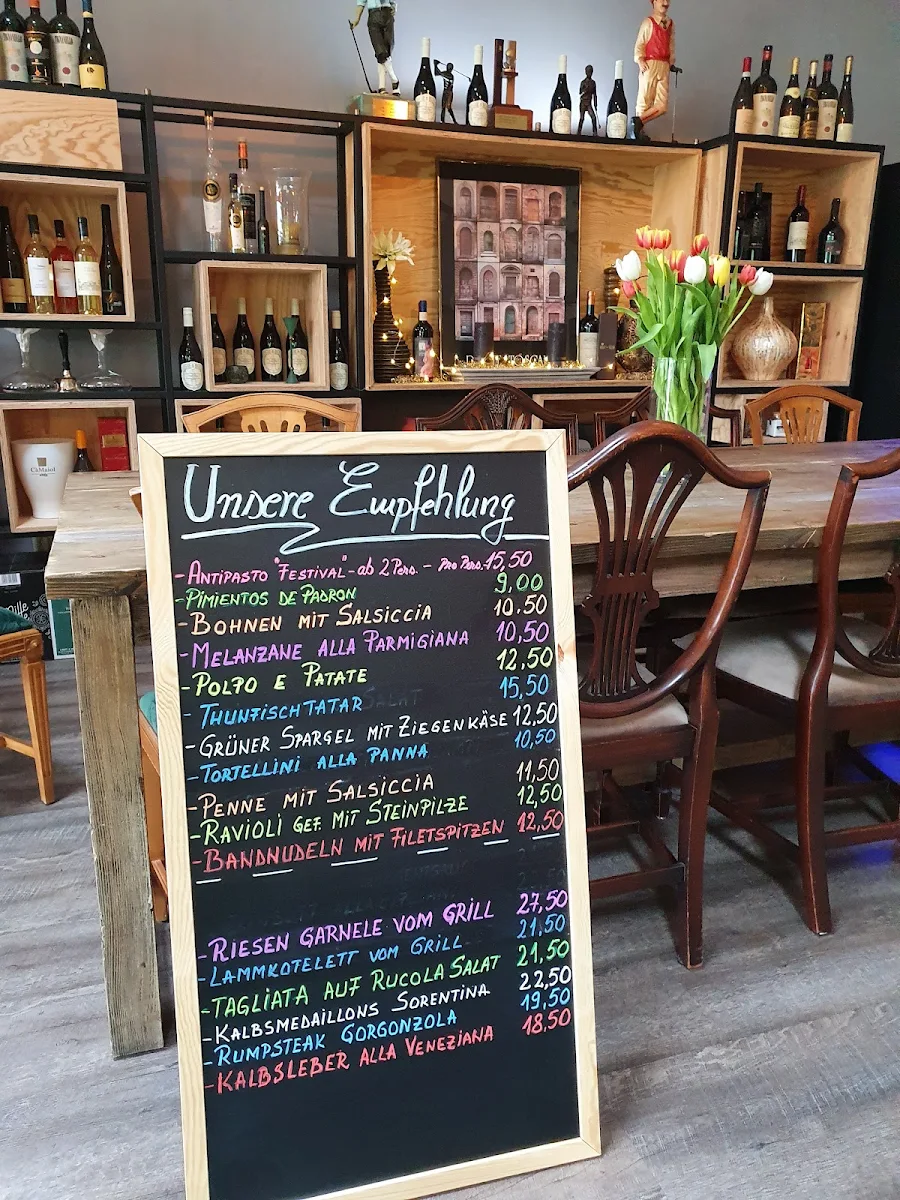 CàMaiol
Unsere Empfehlung
- Antipasto "Festival" - ab 2 Pers. - pro Pers. 15,50
- Pimientos de Padron 9,00
- Bohnen mit Salsiccia 10,50
- Melanzane alla Parmigiana 10,50
- Polpo e Patate 12,50
- Thunfischtatar 15,50
- Grüner Spargel mit Ziegenkäse 12,50
- Tortellini alla panna 10,50
- Penne mit Salsiccia 11,50
- Ravioli gef. mit Steinpilze 12,50
- Bandnudeln mit Filetspitzen 12,50
- Riesen Garnele vom Grill 27,50
- Lammkotelett vom Grill 21,50
- Tagliata auf Rucola Salat 21,50
- Kalbsmedaillons Sorentina 22,50
- Rumpsteak Gorgonzola 19,50
- Kalbsleber alla Veneziana 18,50